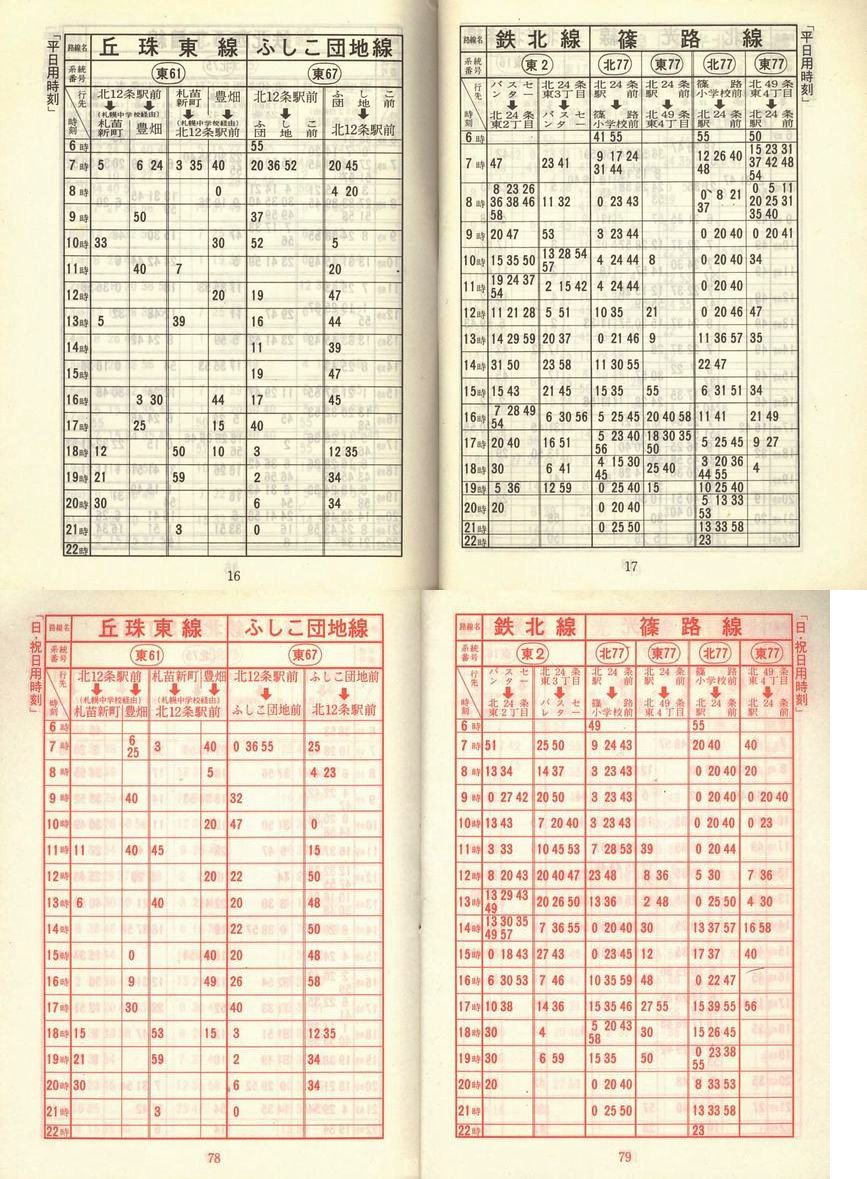 「平日用時刻」
路線名 丘珠東線 ふしこ団地線
系統番号 東61 東67
行先 時刻 北12条駅前 ➡ (札幌中学校経由) 札苗新町 豊畑 札苗新町 豊畑 ➡ (札幌中学校経由) 北12条駅前 北12条駅前 ➡ ふしこ団地前 ふしこ団地前 ➡ 北12条駅前
6時 55
7時 5 6 24 3 35 40 20 36 52 20 45
8時 0 4 20
9時 50 37
10時 33 30 52 5
11時 40 7 20
12時 20 19 47
13時 5 39 16 44
14時 11 39
15時 19 47
16時 3 30 44 17 45
17時 25 15 40
18時 12 50 10 3 12 35
19時 21 59 2 34
20時 30 6 34
21時 3 0
22時
16
「平日用時刻」
路線名 鉄北線 篠路線
系統番号 東2 北77 東77 北77 東77
行先 時刻 バスセンター ➡ 北24条東2丁目 北24条東3丁目 ➡ バスセンター 北24条駅前 ➡ 篠路小学校前 北24条駅前 ➡ 北49条東4丁目 篠路小学校前 ➡ 北24条駅前 北49条東4丁目 ➡ 北24条駅前
6時 41 55 55 50
7時 47 23 41 9 17 24 31 44 12 26 40 48 15 23 31 37 42 48 54
8時 8 23 26 36 38 46 58 11 32 0 23 43 0 8 21 37 0 5 11 20 25 31 35 40
9時 20 47 53 3 23 44 0 20 40 0 20 41
10時 15 35 50 13 28 54 57 4 24 44 8 0 20 40 34
11時 19 24 37 54 2 15 42 4 24 44 0 20 40
12時 11 21 28 5 51 10 35 21 0 20 46 47
13時 14 29 59 20 37 0 21 46 9 11 36 57 35
14時 31 50 23 58 11 30 55 22 47
15時 15 43 21 45 15 35 55 6 31 51 34
16時 7 28 49 54 6 30 56 5 25 45 20 40 58 11 41 21 49
17時 20 40 16 51 5 23 40 56 18 30 35 50 5 25 45 9 27
18時 30 6 41 4 15 30 45 25 40 3 20 36 44 55 4
19時 5 36 12 59 0 25 40 15 10 25 40
20時 20 0 20 40 5 13 33 53
21時 0 25 50 13 33 58
22時 23
17
「日・祝日用時刻」
路線名 丘珠東線 ふしこ団地線
系統番号 東61 東67
行先 時刻 北12条駅前 ➡ (札幌中学校経由) 札苗新町 豊畑 札苗新町 豊畑 ➡ (札幌中学校経由) 北12条駅前 北12条駅前 ➡ ふしこ団地前 ふしこ団地前 ➡ 北12条駅前
6時
7時 6 25 3 40 0 36 55 25
8時 5 4 23
9時 40 32
10時 20 47 0
11時 11 40 45 15
12時 20 22 50
13時 6 40 20 48
14時 22 50
15時 0 40 20 48
16時 9 49 26 58
17時 30 40
18時 15 53 15 3 12 35
19時 21 59 2 34
20時 30 6 34
21時 3 0
22時
78
「日・祝日用時刻」
路線名 鉄北線 篠路線
系統番号 東2 北77 東77 北77 東77
行先 時刻 バスセンター ➡ 北24条東2丁目 北24条東3丁目 ➡ バスセレター 北24条駅前 ➡ 篠路小学校前 北24条駅前 ➡ 北49条東4丁目 篠路小学校前 ➡ 北24条駅前 北49条東4丁目 ➡ 北24条駅前
6時 49 55
7時 51 25 50 9 24 43 20 40 40
8時 13 34 14 37 3 23 43 0 20 40 20
9時 0 27 42 20 50 3 23 43 0 20 40 0 20 40
10時 13 43 7 20 40 3 23 43 0 20 40 0 23
11時 3 33 10 45 53 7 28 53 39 0 20 44
12時 8 20 43 20 40 47 23 48 8 36 5 30 7 36
13時 13 29 43 49 20 26 50 13 36 2 48 0 25 50 4 30
14時 13 30 35 49 57 7 36 55 0 20 40 30 13 37 57 16 58
15時 0 18 43 27 43 0 23 45 12 17 37 40
16時 6 30 53 7 46 10 35 59 48 0 22 47
17時 10 38 14 36 15 35 46 27 55 15 39 55 56
18時 30 4 5 20 43 58 30 15 26 45
19時 30 6 59 15 35 50 0 23 38 55
20時 20 0 20 40 8 33 53
21時 0 25 50 13 33 58
22時 23
79